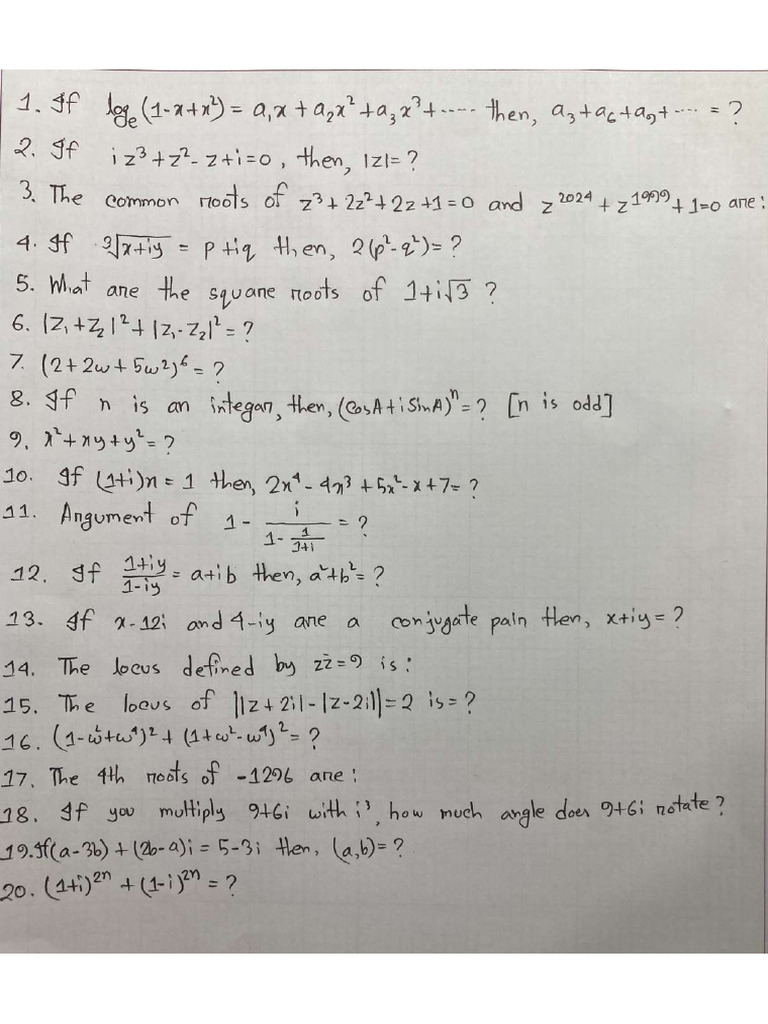 1. If logₑ(1-x+x²) = a₁x + a₂x² + a₃x³ + ..... then, a₃+a₆+a₉+ ..... = ?
2. If iz³+z²-z+i=0, then, |z|=?
3. The common roots of z³+2z²+2z+1=0 and z²⁰²⁴+z¹⁹⁹⁹+1=0 are:
4. If ∛(x+iy) = p+iq then, 2(p²-q²)=?
5. What are the square roots of 1+i√3 ?
6. |Z₁+Z₂|²+|Z₁-Z₂|²=?
7. (2+2ω+5ω²)⁶=?
8. If n is an integar, then, (CosA+iSinA)ⁿ=? [n is odd]
9. x²+xy+y²=?
10. If (1+i)x=1 then, 2x⁴-4x³+5x²-x+7=?
11. Argument of 1 - i/(1 - 1/(1+i)) = ?
12. If (1+iy)/(1-iy) = a+ib then, a²+b²=?
13. If x-12i and 4-iy are a conjugate pair then, x+iy=?
14. The locus defined by zz̄=9 is:
15. The locus of ||z+2i|-|z-2i||=2 is=?
16. (1-ω²+ω⁴)²+(1+ω²-ω⁴)²=?
17. The 4th roots of -1296 are:
18. If you multiply 9+6i with i³, how much angle does 9+6i rotate?
19. If (a-3b)+(2b-a)i = 5-3i then, (a,b)=?
20. (1+i)²ⁿ+(1-i)²ⁿ=?